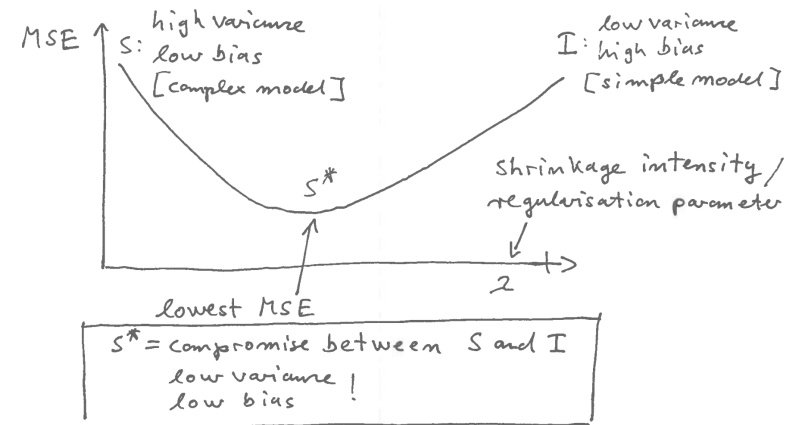 MSE
S: high variance
low bias
[complex model]
low variance
I: high bias
[simple model]
S*
shrinkage intensity/
regularisation parameter
λ
lowest MSE
S* = compromise between S and I
low variance
low bias !